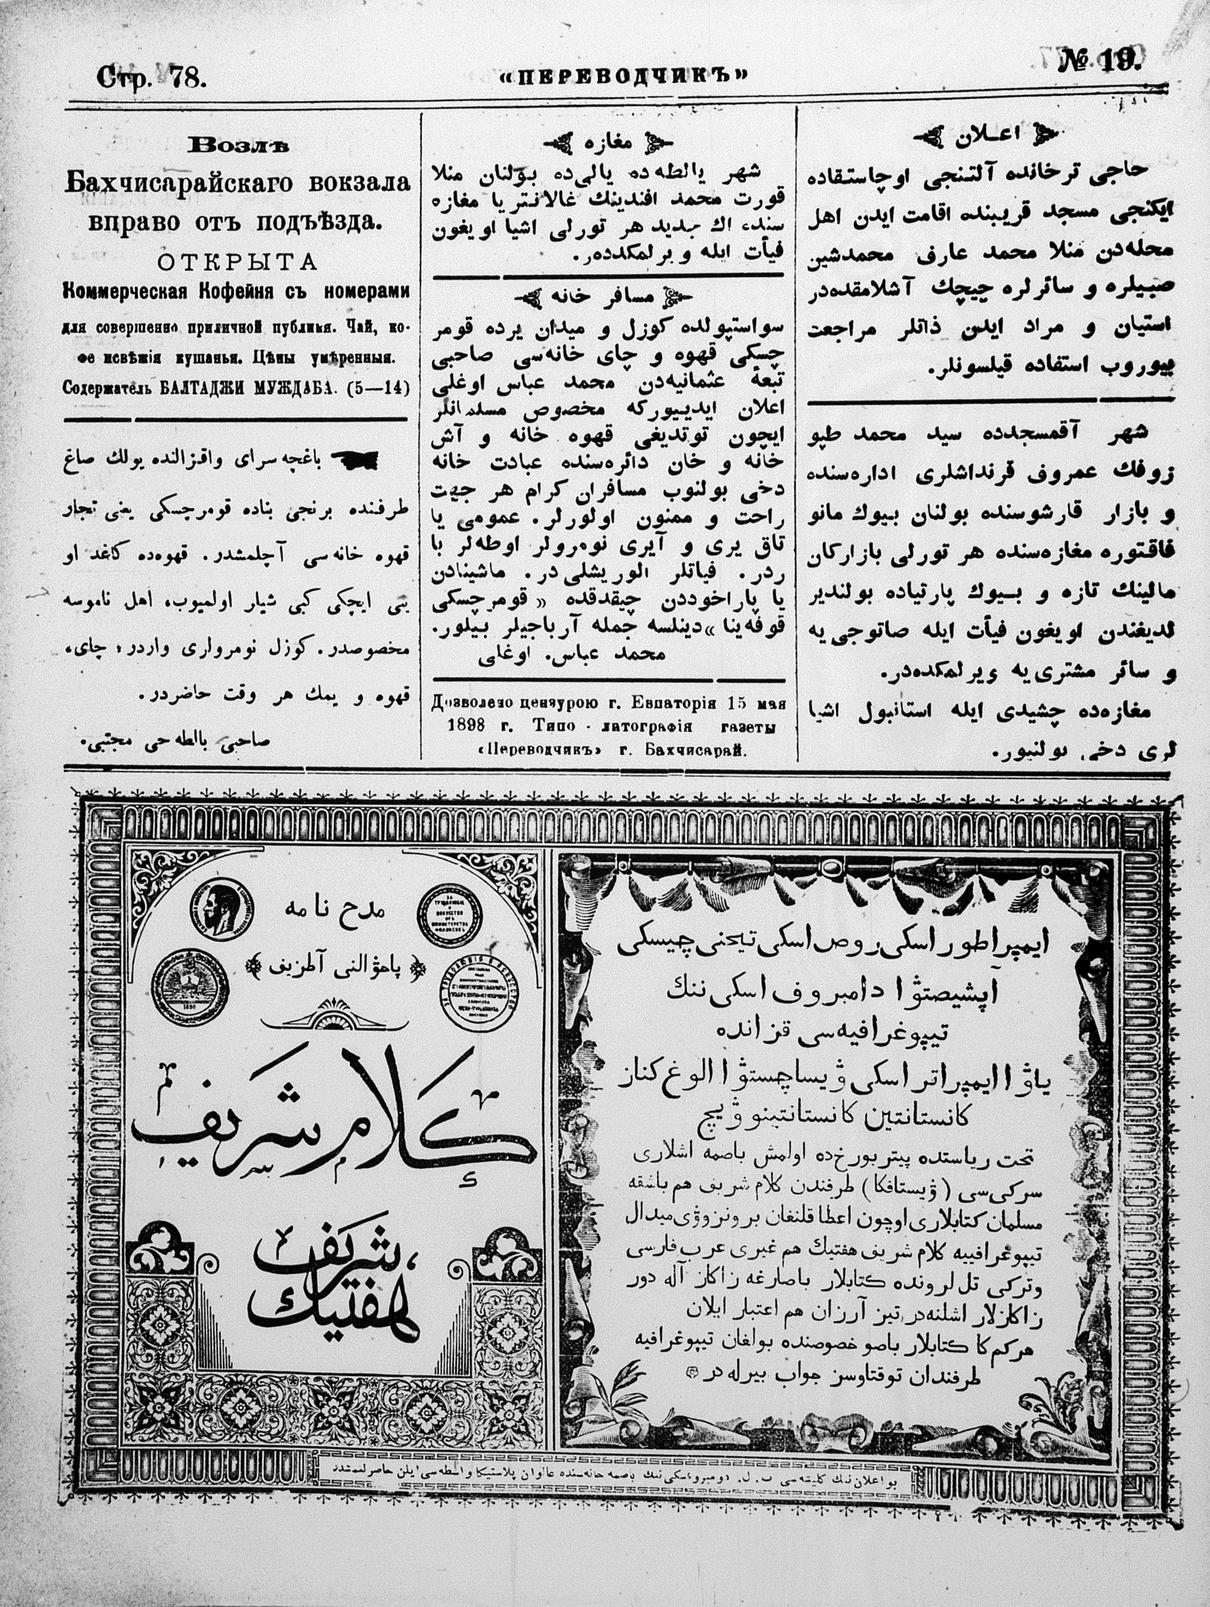 Стр. 78.
«ПЕРЕВОДЧИКЪ»
№ 19.
Возлѣ
Бахчисарайскаго вокзала
вправо отъ подъѣзда.
ОТКРЫТА
Коммерческая Кофейня съ номерами
для совершенно приличной публики. Чай, ко-
фе и свѣжія кушанья. Цѣны умѣренныя.
Содержатель БАЛТАДЖИ МУЖДАБА. (5—14)
باغچه سرای واقزالنده یولك صاغ
طرفنده برنجی بناده قومرچسکی یعنی تجار
قهوه خانه سی آچلمشدر. قهوه‌ده کاغد او
یی ایچکی کبی شیلر اولمیوب، اهل ناموسه
مخصوصدر. کوزل نومرولری واردر؛ چای،
قهوه و یمك هر وقت حاضردر.
صاحبی بالطه جی مجتبی.
مغازه
شهر یالطه‌ده یالی‌ده بولنان منلا
قورت محمد افندینك غالانتریا مغازه
سنده اك جدید هر تورلی اشیا اویغون
فیأت ایله ویرلمکده‌در.
مسافر خانه
سواستپولده کوزل و میدان یرده قومر
چسکی قهوه و چای خانه‌سی صاحبی
تبعهٔ عثمانیه‌دن محمد عباس اوغلی
اعلان ایدییورکه مخصوص مسلمانلر
ایچون توتدیغی قهوه خانه و آش
خانه و خان دائره‌سنده عبادت خانه
دخی بولنوب مسافران کرام هر جهت
راحت و ممنون اولورلر. عمومی یا
تاق یری و آیری نومرولر اوطه‌لر با
ردر. فیاتلر الوریشلی در. ماشینادن
یا پاراخوددن چیقدقده «قومرچسکی
قوفه‌ینا» دینلسه جمله آرباجیلر بیلور.
محمد عباس. اوغلی
Дозволено цензурою г. Евпаторія 15 мая
1898 г. Типо-литографія газеты
«Переводчикъ» г. Бахчисарай.
اعلان
حاجی ترخانده آلتنجی اوچاستقاده
ایکنجی مسجد قریبنده اقامت ایدن اهل
محله‌دن منلا محمد عارف محمدشین
صبیلره و سائرلره چیچك آشلامقده‌در
استیان و مراد ایدن ذاتلر مراجعت
بیوروب استفاده قیلسونلر.
شهر آقمسجدده سید محمد طپو
زوفك عمروف قرنداشلری اداره‌سنده
و بازار قارشوسنده بولنان بیوك مانو
فاقتوره مغازه‌سنده هر تورلی بازارکان
مالینك تازه و بیوك پارتیاده بولندیر
لدیغندن اویغون فیأت ایله صاتوجی‌یه
و سائر مشتری‌یه ویرلمکده‌در.
مغازه‌ده چشیدی ایله استانبول اشیا
لری دخی بولنیور.
مدح نامه
پاخوالنی آطزیف
کلام شریف
هفتیك شریف
ایمپراطور اسکی روص اسکی تیخنی چیسکی
آپشیصتوا دامبروف اسکی ننك
تیپوغرافیه‌سی قزانده
یاوا ایمپراتر اسکی ویساچستوا الوغ کناز
کانستانتین کانستانتینوویچ
تحت ریاستده پیتربورخ‌ده اولمش باصمه اشلاری
سرکی‌سی (ویستافکا) طرفندن کلام شریف هم باشقه
مسلمان کتابلاری اوچون اعطا قلنغان برونزوی میدال
تیپوغرافییه کلام شریف هفتیك هم غیری عرب فارسی
وترکی تل لرونده کتابلار باصارغه زاکاز آله دور
زاکازلار اشلنه‌در تیز آرزان هم اعتبار ایلان
هرکم کا کتابلار باصو خصوصنده بولغان تیپوغرافیه
طرفندان توقتاوسز جواب بیرله در